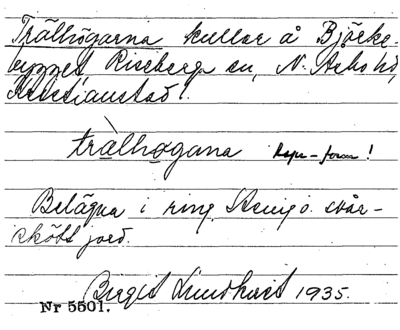 Trälhögarna kullar å Björke-
bygget Riseberga sn, N. Åsbo hd,
Kristianstad.
trälhøgana Rspr-form!
Belägna i ring. Stenig o. svår-
skött jord.
Birgit Lindkvist 1935.
Nr 5501.